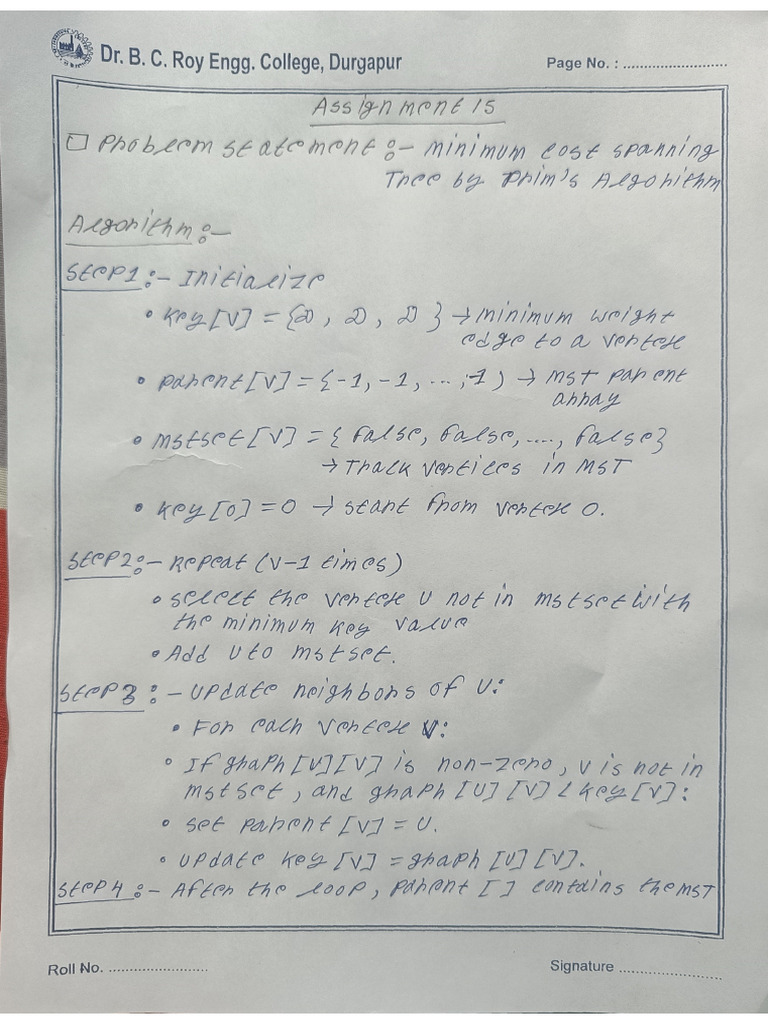 Dr. B. C. Roy Engg. College, Durgapur
Page No. : ..........................
Assignment 15
Problem statement :- minimum cost spanning
Tree by Prim's Algorithm
Algorithm :-
Step1 :- Initialize
• key[V] = {∞, ∞, ∞ } → minimum weight
edge to a vertex
• parent[V] = {-1, -1, ..., -1 } → MST parent
array
• mstset[V] = { false, false, ...., false}
→ Track vertices in MST
• key[0] = 0 → start from vertex 0.
Step2 :- Repeat (V-1 times)
• select the vertex U not in mstset with
the minimum key value
• Add U to mstset.
Step3 :- Update neighbors of U:
• For each vertex V:
• If graph[U][V] is non-zero, V is not in
mstset, and graph [U] [V] < key[V]:
• set parent [V] = U.
• Update key [V] = graph [U] [V].
Step4 :- After the loop, parent [ ] contains the MST
Roll No. .........................
Signature ..........................